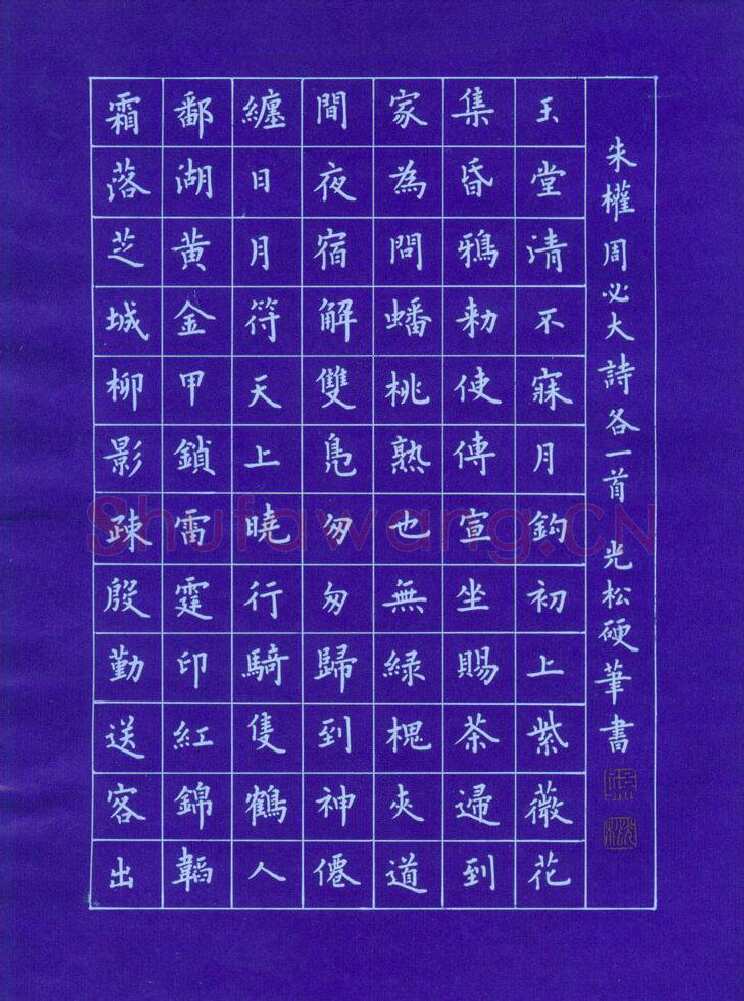 霜落芝城柳影疎殷勤送客出
鄱湖黃金甲鎖雷霆印紅錦韜
纏日月符天上曉行騎隻鶴人
間夜宿解雙鳧匆匆歸到神僊
家為問蟠桃熟也無緑槐夾道
集昏鴉勅使傳宣坐賜茶歸到
玉堂清不寐月鈎初上紫薇花
朱權周必大詩各一首 光松硬筆書
Shufawang.CN